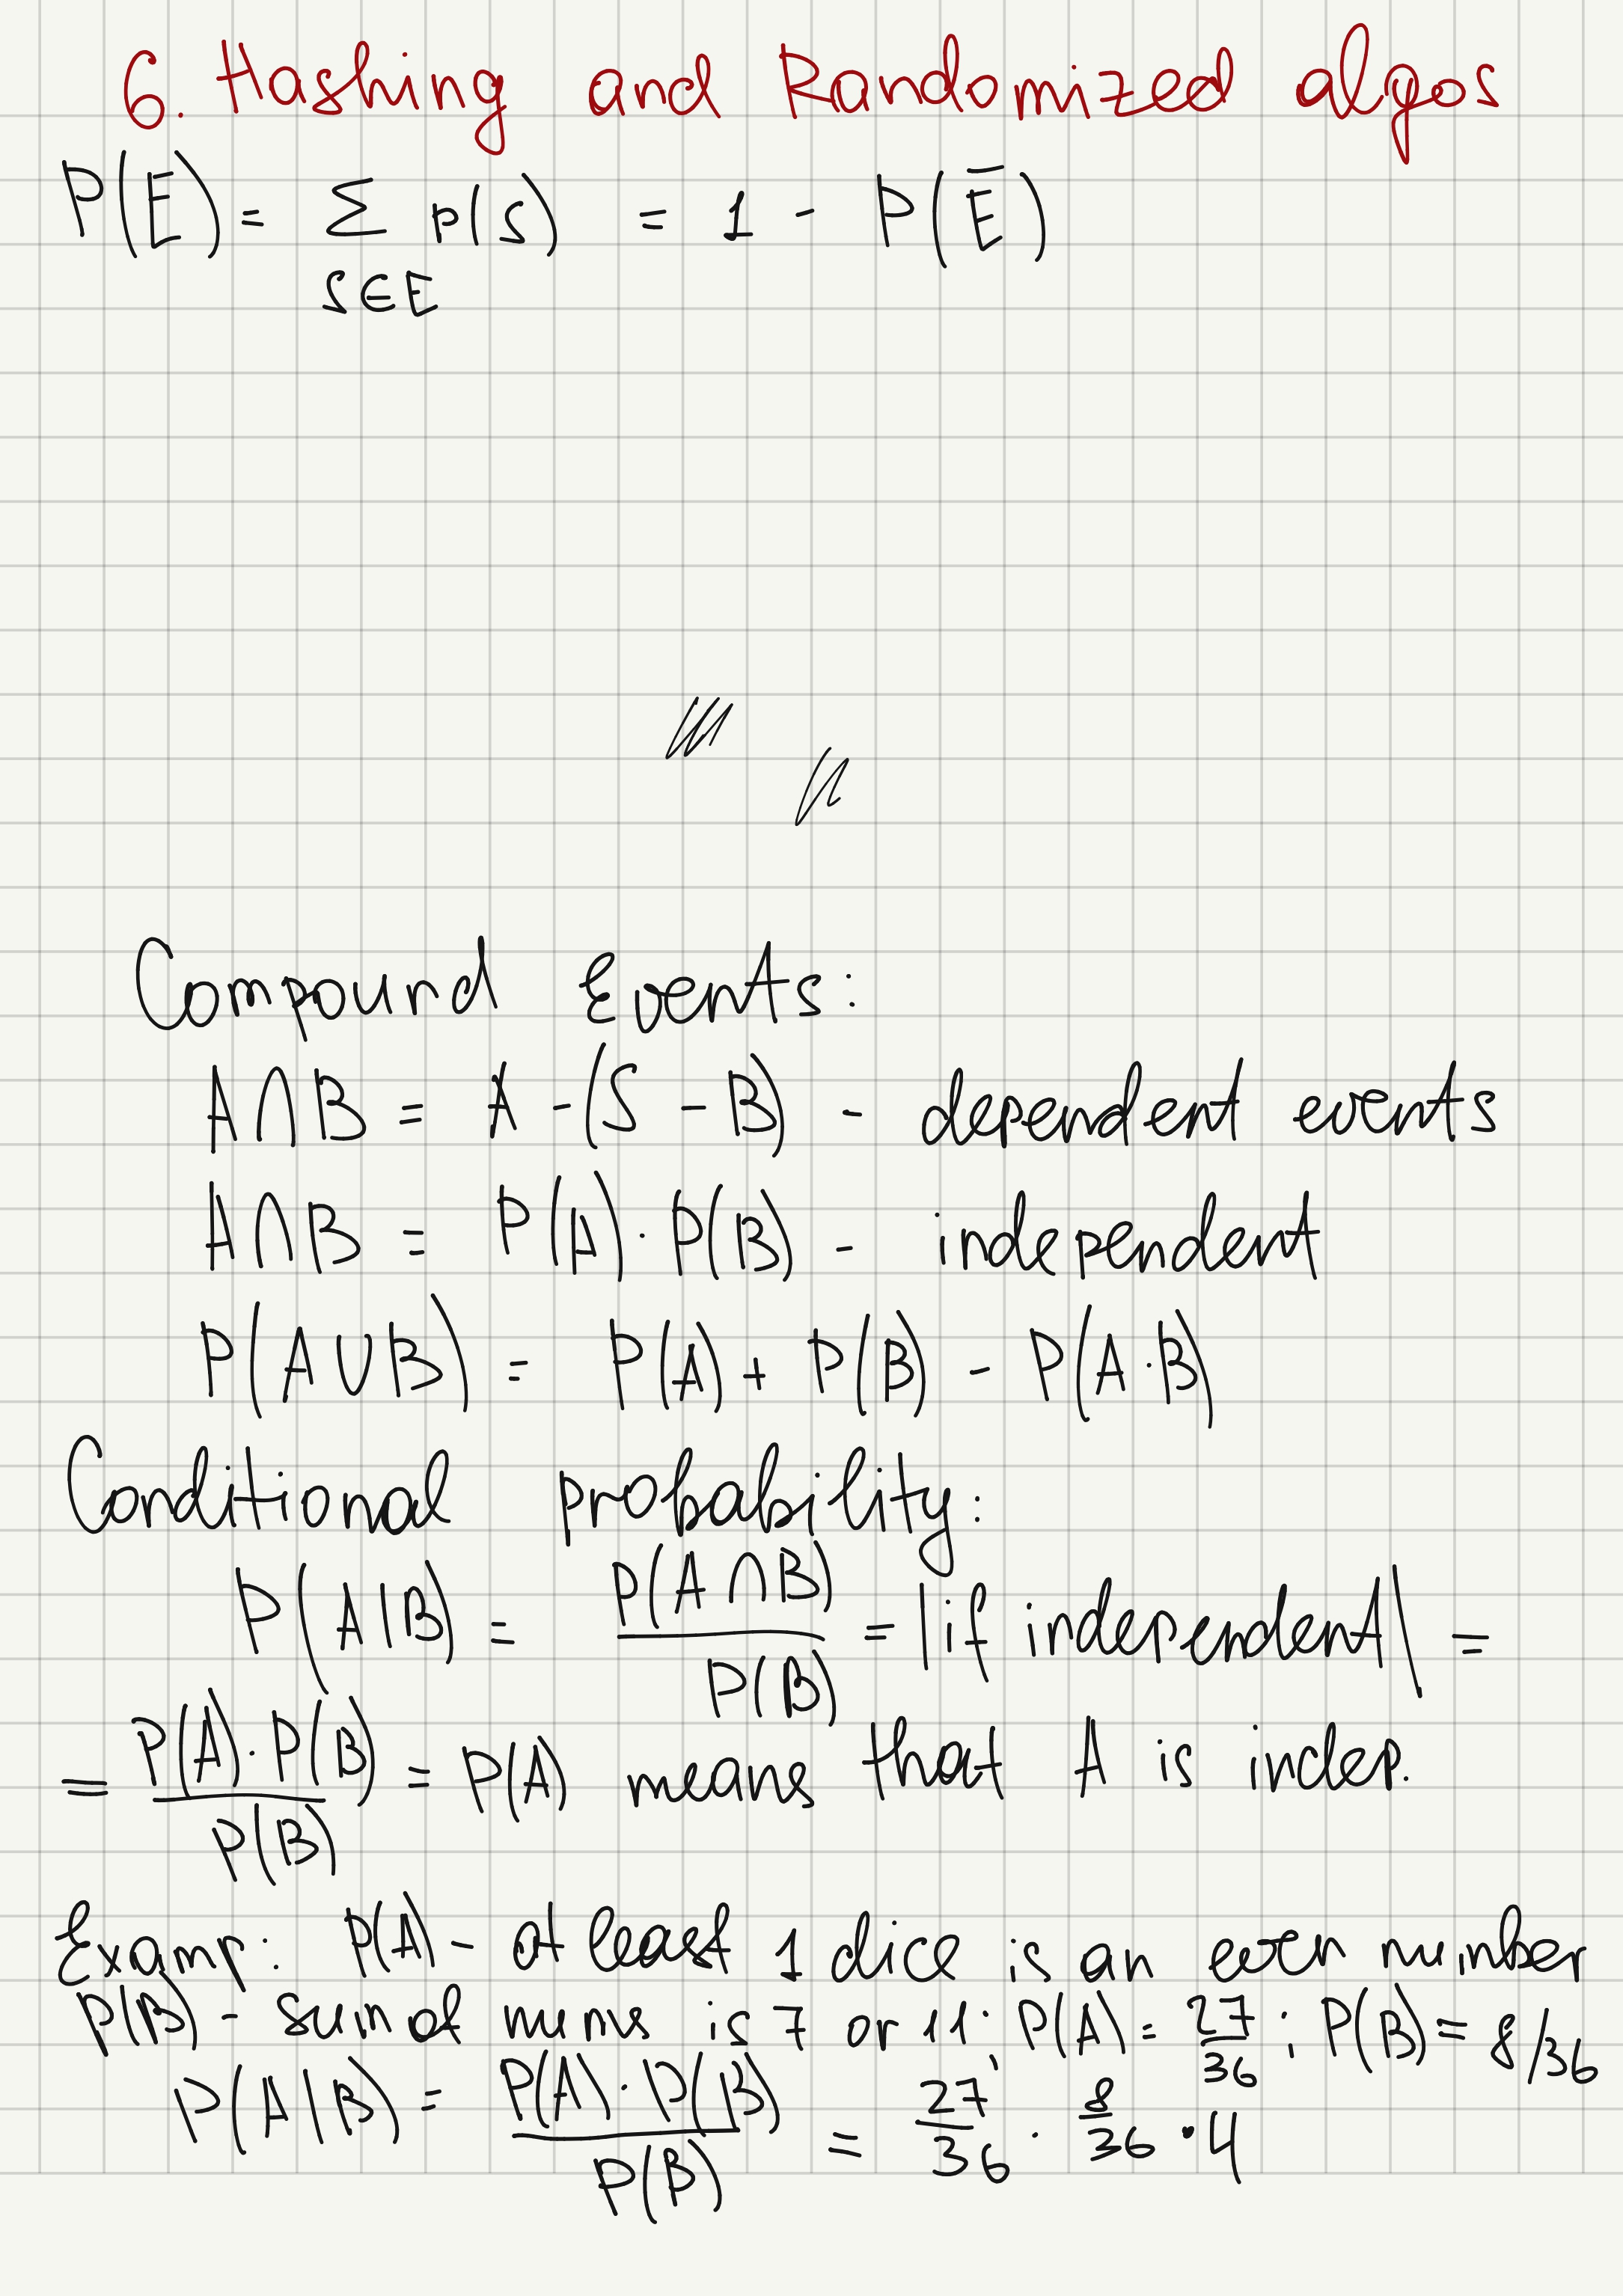 6. Hashing and Randomized algos
P(E) = Σ p(s) = 1 - P(E̅)
S∈E
Compound Events:
A∩B = A - (S - B) - dependent events
A∩B = P(A)·P(B) - independent
P(A∪B) = P(A) + P(B) - P(A·B)
Conditional probability:
P(A|B) = P(A∩B) / P(B) = |if independent| =
= P(A)·P(B) / P(B) = P(A) means that A is indep.
Examp: P(A) - at least 1 dice is an even number
P(B) - sum of nums is 7 or 11; P(A) = 27/36; P(B) = 8/36
P(A|B) = P(A)·P(B) / P(B) = 27/36 · 8/36 · 4